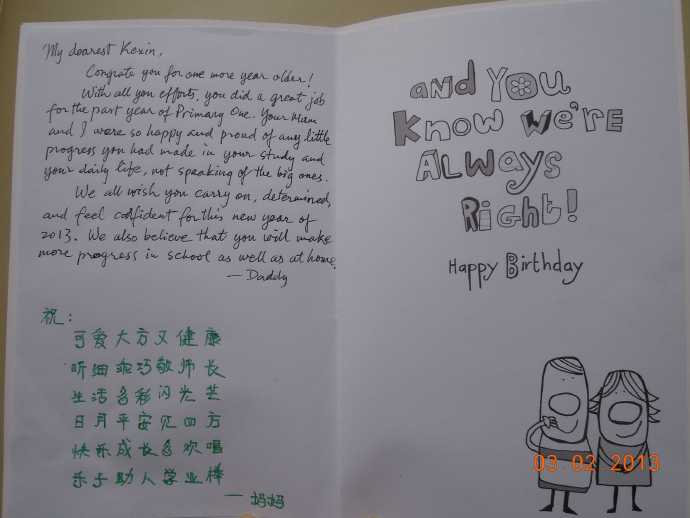 My dearest Kexin,
Congrats you for one more year older!
With all you efforts, you did a great job
for the past year of Primary One. Your Mum
and I were so happy and proud of any little
progress you had made in your study and
your daily life, not speaking of the big ones.
We all wish you carry on, determined,
and feel confident for this new year of
2013. We also believe that you will make
more progress in school as well as at home.
— Daddy
祝：
可爱大方又健康
听细乖巧敬师长
生活多彩闪光芒
日月平安见四方
快乐成长多欢唱
乐于助人学业棒
— 妈妈
and You
Know We're
Always
Right!
Happy Birthday
03.02.2013